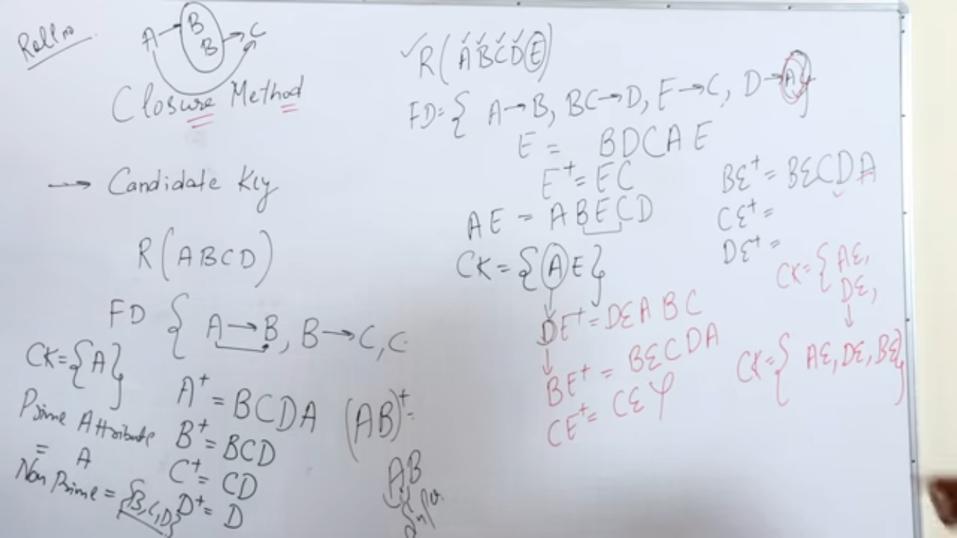 Roll no
A → B
B → C
Closure Method
→ Candidate Key
R(ABCD)
FD { A→B, B→C, C
CK={A}
A⁺ = BCDA (AB)⁺=
Prime Attribute
= A
B⁺ = BCD
C⁺ = CD
Non Prime = {B,C,D}
D⁺ = D
AB
✓R(ABCDE)
FD={ A→B, BC→D, E→C, D→A}
E = BDCAE
E⁺ = EC
AE = ABECD
CK = {AE}
DE⁺ = DEABC
BE⁺ = BECDA
CE⁺ = CE
BE⁺ = BECDA
CE⁺ =
DE⁺ =
CK={AE,
DE,
CK={ AE, DE, BE}